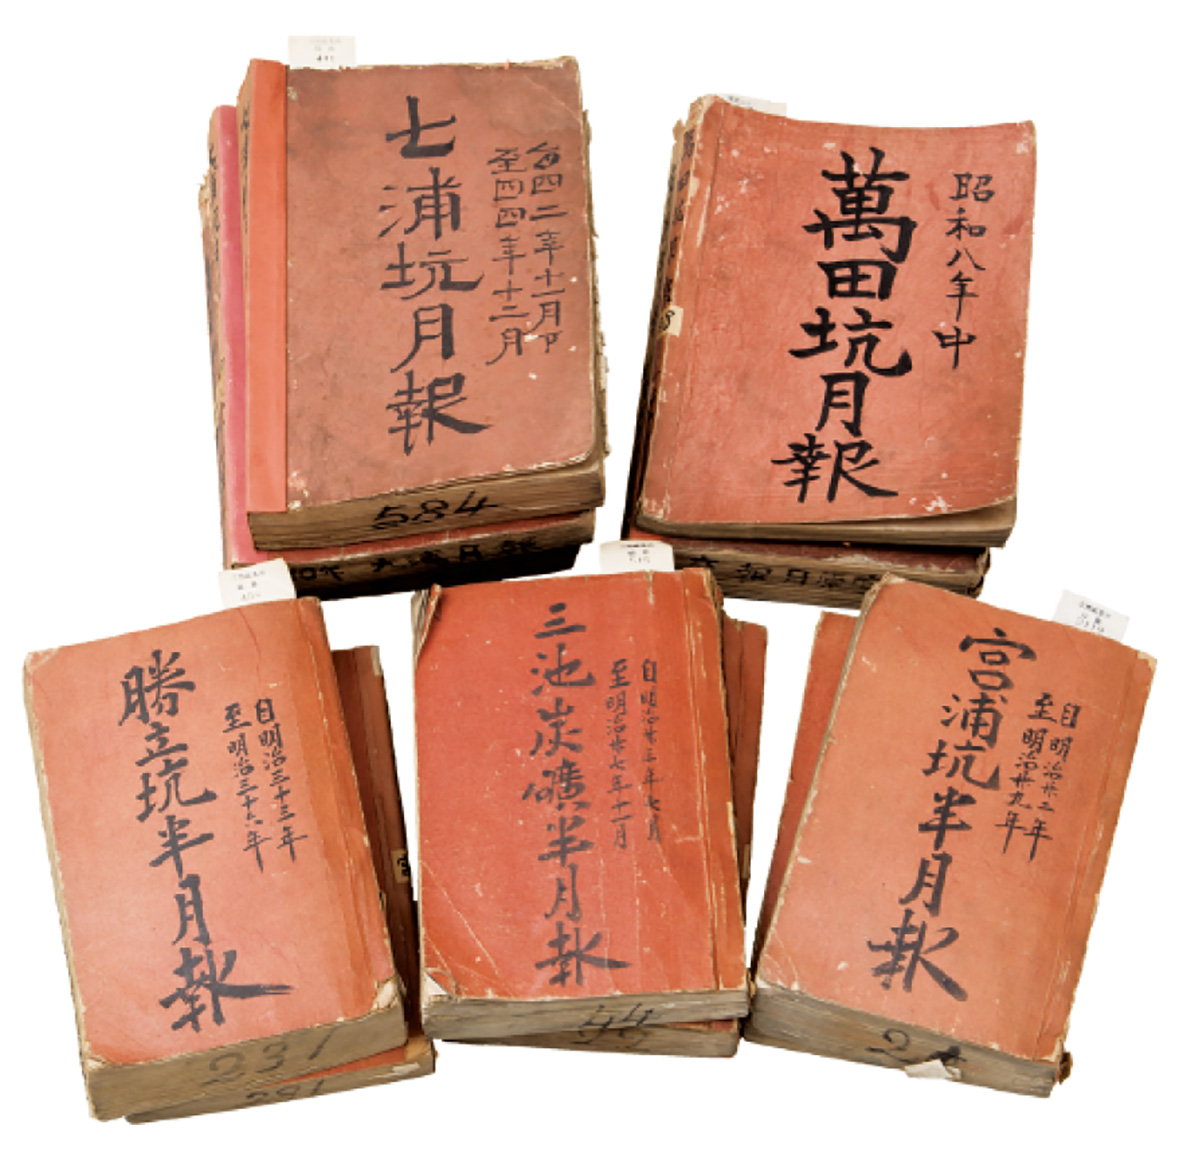 七浦坑月報
自四二年十一月
至四四年十二月
584
萬田坑月報
昭和八年中
勝立坑半月報
自明治三十三年
至明治三十六年
231
291
三池炭礦半月報
自明治廿三年七月
至明治廿七年十一月
44
宮浦坑半月報
自明治廿二年
至明治廿九年